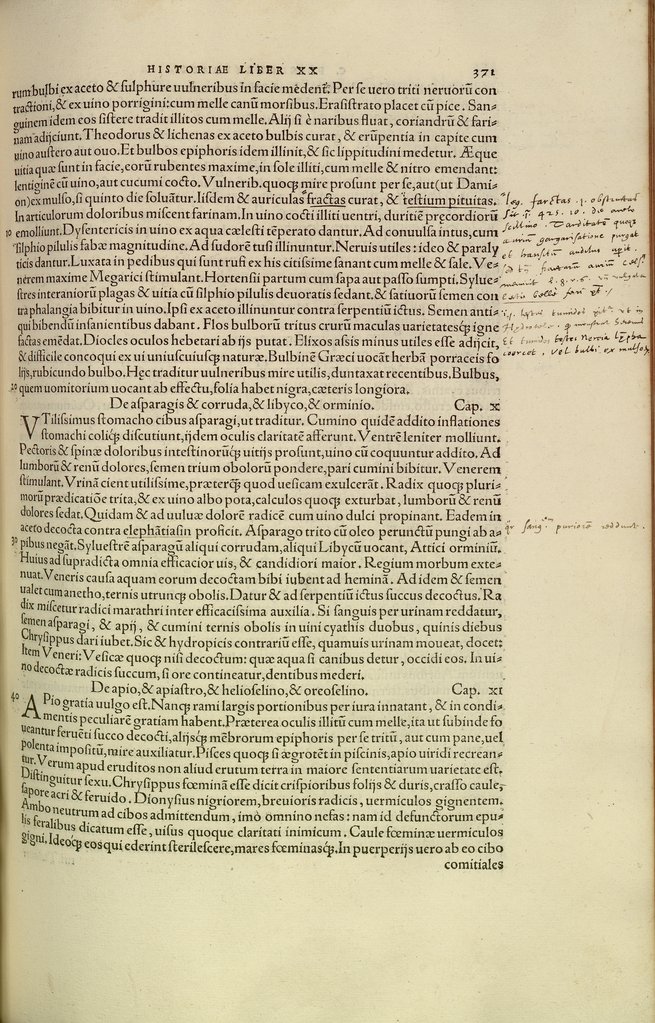 HISTORIAE LIBER XX 371
rum bulbi ex aceto & sulphure uulneribus in facie medent̃. Per se uero triti neruorũ con
tractioni, & ex uino porrigini: cum melle canũ morsibus. Erasistrato placet cũ pice. San-
guinem idem eos sistere tradit illitos cum melle. Alij si è naribus fluat, coriandrũ & fari-
nam adijciunt. Theodorus & lichenas ex aceto bulbis curat, & erũpentia in capite cum
uino austero aut ouo. Et bulbos epiphoris idem illinit, & sic lippitudini medetur. Æque
uitia quæ sunt in facie, eorũ rubentes maxime, in sole illiti, cum melle & nitro emendant:
lentiginē cũ uino, aut cucumi cocto. Vulnerib. quoqꝫ mire prosunt per se, aut (ut Dami-
on) ex mulso, si quinto die soluãtur. Iisdem & auriculas fractas curat, & testium pituitas.
In articulorum doloribus miscent farinam. In uino cocti illiti uentri, duritiẽ pręcordiorũ
10 emolliunt. Dysentericis in uino ex aqua cælesti tẽperato dantur. Ad conuulsa intus, cum
silphio pilulis fabæ magnitudine. Ad sudorẽ tusi illinuntur. Neruis utiles: ideo & paraly
ticis dantur. Luxata in pedibus qui sunt rufi ex his citissime sanant cum melle & sale. Ve-
nerem maxime Megarici stimulant. Hortensii partum cum sapa aut passo sumpti. Sylue-
stres interaniorũ plagas & uitia cũ silphio pilulis deuoratis sedant. & satiuorũ semen con
tra phalangia bibitur in uino. Ipsi ex aceto illinuntur contra serpentiũ ictus. Semen anti-
qui bibendũ insanientibus dabant. Flos bulborũ tritus crurũ maculas uarietatesqꝫ igne
factas emẽdat. Diocles oculos hebetari ab ijs putat. Elixos assis minus utiles esse adijcit,
& difficile concoqui ex ui uniuscuiusqꝫ naturæ. Bulbinẽ Græci uocãt herbã porraceis fo
lijs, rubicundo bulbo. Hęc traditur uulneribus mire utilis, duntaxat recentibus. Bulbus,
20 quem uomitorium uocant ab effectu, folia habet nigra, cæteris longiora.
De asparagis & corruda, & libyco, & orminio. Cap. X
VTilissimus stomacho cibus asparagi, ut traditur. Cumino quidẽ addito inflationes
stomachi coliqꝫ discutiunt, ijdem oculis claritatẽ afferunt. Ventrẽ leniter molliunt.
Pectoris & spinæ doloribus intestinorũqꝫ uitijs prosunt, uino cũ coquuntur addito. Ad
lumborũ & renũ dolores, semen trium obolorũ pondere, pari cumini bibitur. Venerem
stimulant. Vrinã cient utilissime, præterqꝫ quod uesicam exulcerãt. Radix quoqꝫ pluri-
morũ prædicatiõe trita, & ex uino albo pota, calculos quoqꝫ exturbat, lumborũ & renũ
dolores sedat. Quidam & ad uuluæ dolorẽ radicẽ cum uino dulci propinant. Eadem in
aceto decocta contra elephãtiasin proficit. Asparago trito cũ oleo perunctũ pungi ab a-
30 pibus negãt. Syluestrẽ asparagũ aliqui corrudam, aliqui Libycũ uocant, Attici orminiũ.
Huius ad supradicta omnia efficacior uis, & candidiori maior. Regium morbum exte-
nuat. Veneris causa aquam eorum decoctam bibi iubent ad heminã. Ad idem & semen
ualet cum anetho, ternis utrunqꝫ obolis. Datur & ad serpentiũ ictus succus decoctus. Ra
dix miscetur radici marathri inter efficacissima auxilia. Si sanguis per urinam reddatur,
semen asparagi, & apij, & cumini ternis obolis in uini cyathis duobus, quinis diebus
Chrysippus dari iubet. Sic & hydropicis contrariũ esse, quamuis urinam moueat, docet:
Item Veneri: Vesicæ quoqꝫ nisi decoctum: quæ aqua si canibus detur, occidi eos. In ui-
no decoctæ radicis succum, si ore contineatur, dentibus mederi.
De apio, & apiastro, & helioselino, & oreoselino. Cap. XI
40 APio gratia uulgo est. Nanqꝫ rami largis portionibus per iura innatant, & in condi-
mentis peculiarẽ gratiam habent. Præterea oculis illitũ cum melle, ita ut subinde fo
ueantur feruẽti succo decocti, alijsqꝫ mẽbrorum epiphoris per se tritũ, aut cum pane, uel
polenta impositũ, mire auxiliatur. Pisces quoqꝫ si ægrotẽt in piscinis, apio uiridi recrean-
tur. Verum apud eruditos non aliud erutum terra in maiore sententiarum uarietate est.
Distinguitur sexu. Chrysippus fœminã esse dicit crispioribus folijs & duris, crasso caule,
sapore acri & feruido. Dionysius nigriorem, breuioris radicis, uermiculos gignentem.
Ambo neutrum ad cibos admittendum, imò omnino nefas: nam id defunctorum epu-
lis feralibus dicatum esse, uisus quoque claritati inimicum. Caule fœminæ uermiculos
gigni. Ideoqꝫ eos qui ederint sterilescere, mares fœminasqꝫ. In puerperijs uero ab eo cibo
comitiales
leg. farctas
sang. puriorẽ reddunt.